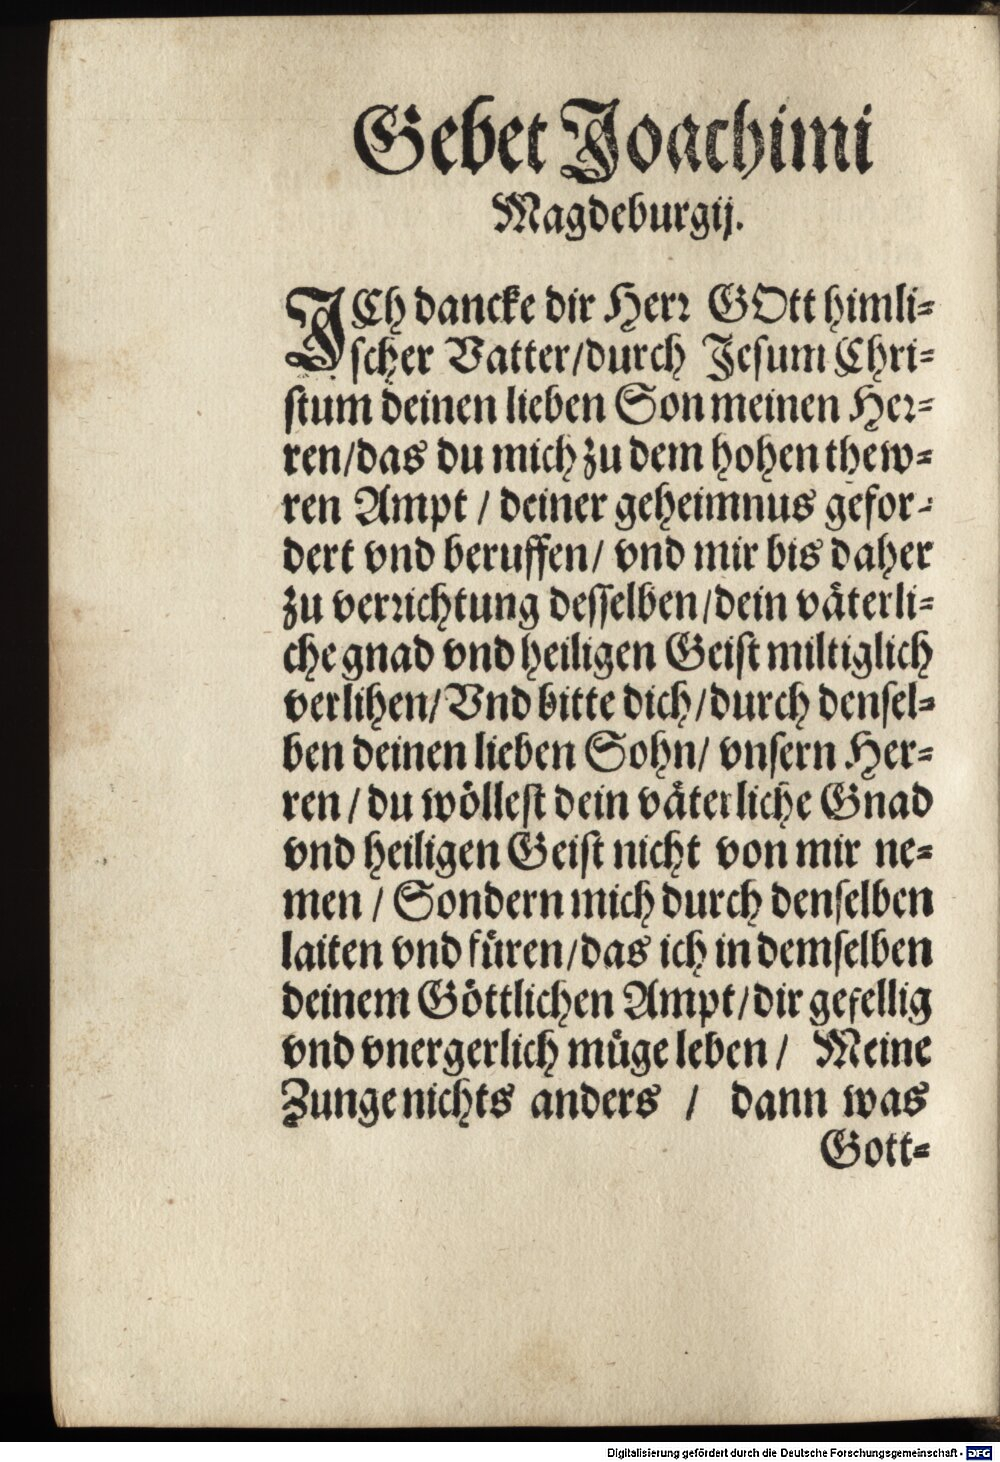 Gebet Joachimi
Magdeburgij.
ICh dancke dir Herr GOtt himli-
scher Vatter/durch Jesum Chri-
stum deinen lieben Son meinen Her-
ren/das du mich zu dem hohen thew-
ren Ampt / deiner geheimnus gefor-
dert vnd beruffen/ vnd mir bis daher
zu verrichtung desselben/dein väterli-
che gnad vnd heiligen Geist miltiglich
verlihen/Vnd bitte dich/durch densel-
ben deinen lieben Sohn/ vnsern Her-
ren / du wöllest dein väterliche Gnad
vnd heiligen Geist nicht von mir ne-
men / Sondern mich durch denselben
laiten vnd füren/das ich in demselben
deinem Göttlichen Ampt/dir gefellig
vnd vnergerlich müge leben / Meine
Zunge nichts anders / dann was
Gott-
Digitalisierung gefördert durch die Deutsche Forschungsgemeinschaft - DFG